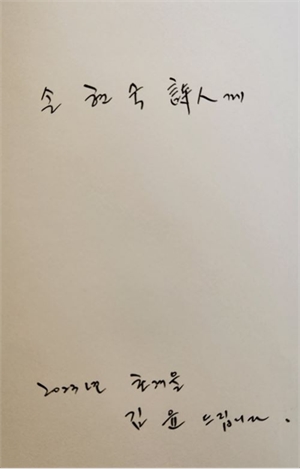 손 현숙 詩人께
2023년 초겨울
김 윤 드립니다.